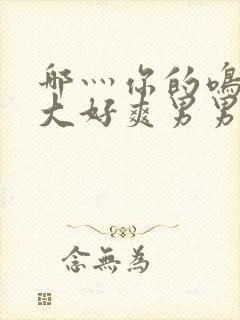 哪灬你的鳴
大好爽男男
念無為